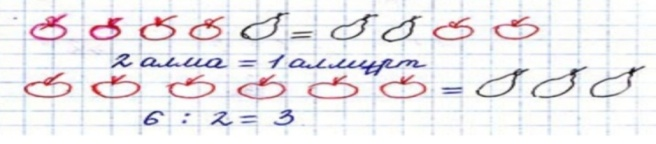 =
2 алма = 1 алмұрт
=
6 : 2 = 3